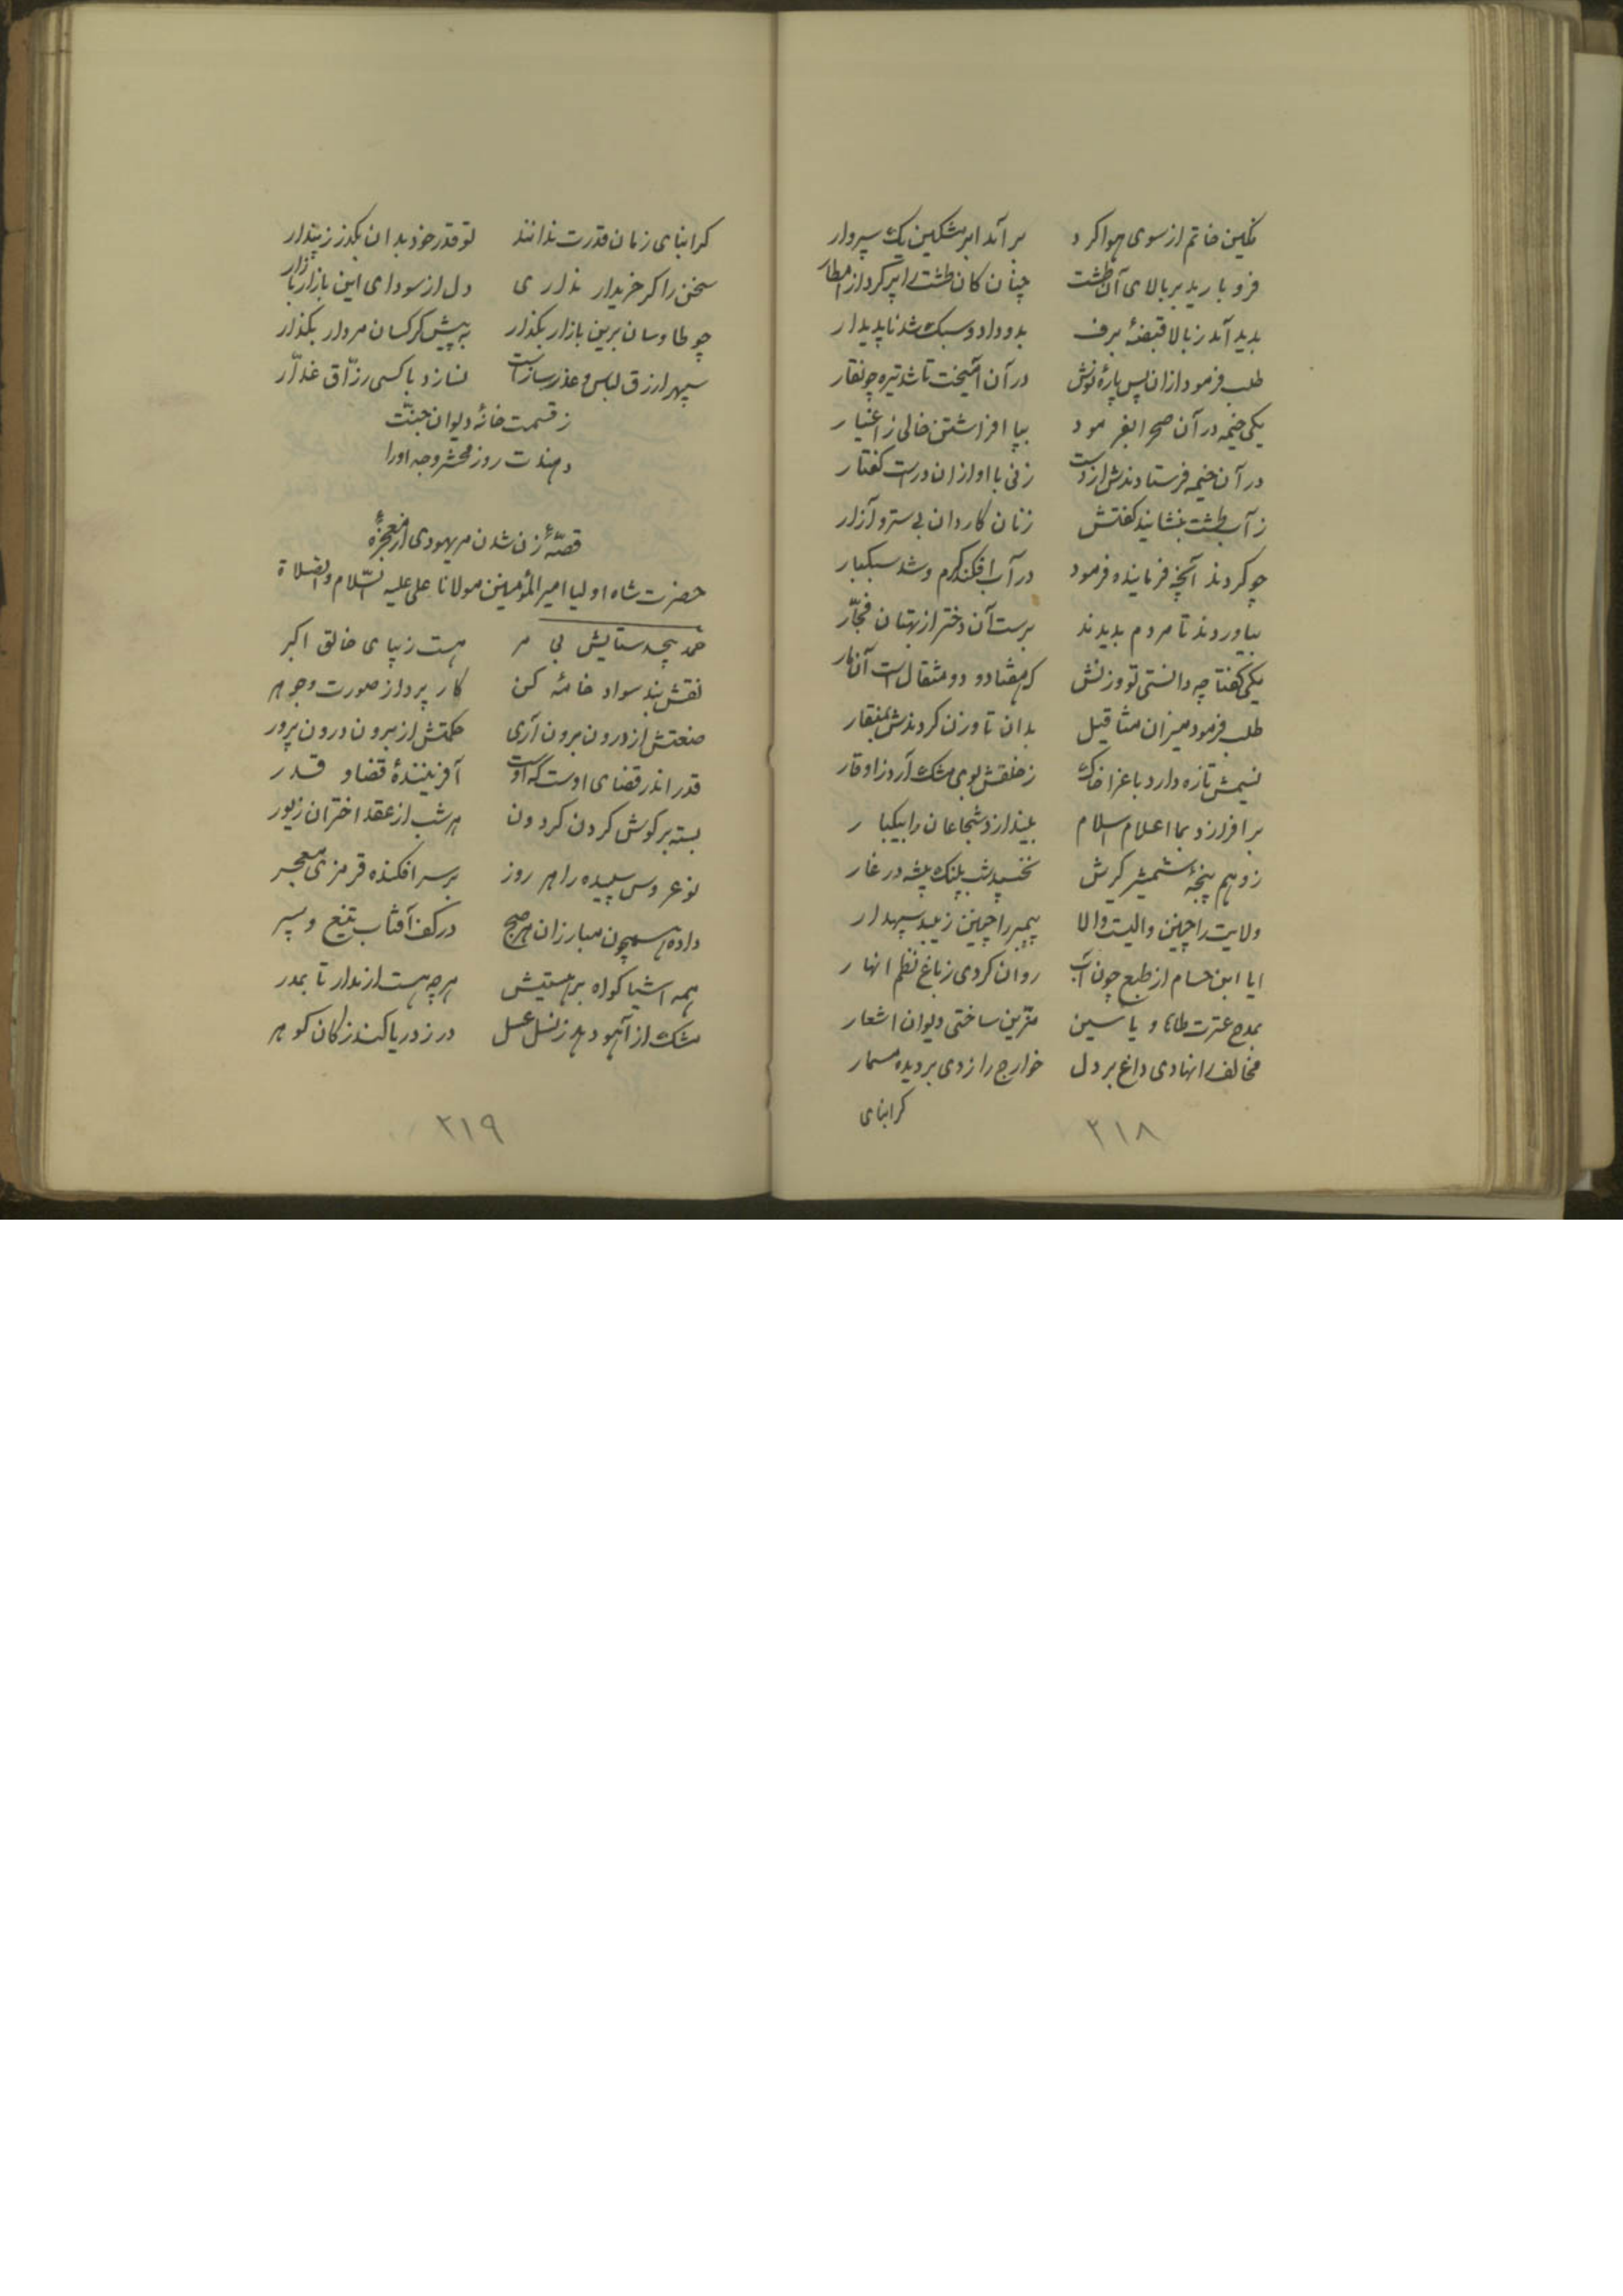 نگین خاتم از سوی هوا کرد برآمد ابر مشکین یک سپروار
فرو بارید بر بالای آن طشت چنان کان طشت را پر کرد از امطار
بدید آمد ز بالا قبضهٔ برف بدو داد و سبک شد ناپدیدار
طلب فرمود ازان پس پارهٔ لوش در آن آمیخت تا شد تیره چو نقار
یکی خیمه در آن صحرا بفرمود بپا افراشتن خالی ز اغیار
در آن خیمه فرستادندش از دست زنی با او ازان درست گفتار
ز آب طشت بنشانید گفتش زنان کاردان بی ستر و آزار
چو کردند آنچه فرماینده فرمود در آب افکند کرم و شد سبکبار
بیاوردند تا مردم بدیدند برست آن دختر از بهتان فجّار
یکی گفتا چه دانستی تو وزنش که هفتاد و دو مثقال است آن مار
طلب فرمود میزان مثاقیل بدان تا وزن کردندش بمنقار
نسیمش تازه دارد باغزا خاک ز خلقش بوی مشک آرد زاوقار
برافرازد بما اعلام اسلام بیندازد شجاعان را بیکبار
ز وهم پنجهٔ شمشیر گیرش نخسپد شب پلنگ بیشه در غار
ولایت را چنین والیست والا پیمبر را چنین زیبد سپهدار
ایا ابن حسام از طبع چون آب روان کردی ز باغ نظم انهار
بمدح عترت طاها و یاسین مزین ساختی دیوان اشعار
مخالف را نهادی داغ بر دل خوارج را زدی بر دیده مسمار
کرابنای
۲۱۸
کرابنای زمان قدرت ندانند تو قدر خود بدان بگذر ز پندار
سخن را گر خریدار نداری دل از سودای این بازار باز آر
چو طاوسان برین بازار بگذار به پیش کرکسان مردار بگذار
سپهر ازرق لباس و عذر سازست نسازد با کسی رزّاق غدّار
ز قسمت خانهٔ دیوان جنّت
دهندت روز محشر وجه اورا
قصّهٔ زن شدن مر یهودی از معجزهٔ
حضرت شاه اولیا امیر المؤمنین مولانا علی علیه السّلام والصلاة
حمد بیحد ستایش بی مر هست زیبای خالق اکبر
نقش بند سواد خامهٔ کن کار پرداز صورت و جوهر
صنعتش از درون برون آری حکمتش از برون درون پرور
قدر اندر قضای اوست که اوست آفرینندهٔ قضا و قدر
بسته بر گوش گردن گردون هر شب از عقد اختران زیور
نو عروس سپیده را هر روز بر سر افکنده قرمزی معجر
داده همچون مبارزان هر صبح در کف آفتاب تیغ و سپر
همه اشیا گواه بر هستیش هر چه هست از مدار تا بمدر
مشک از آهو دهد ز نسل عسل در ز دریا کند ز کان گوهر
۲۱۹